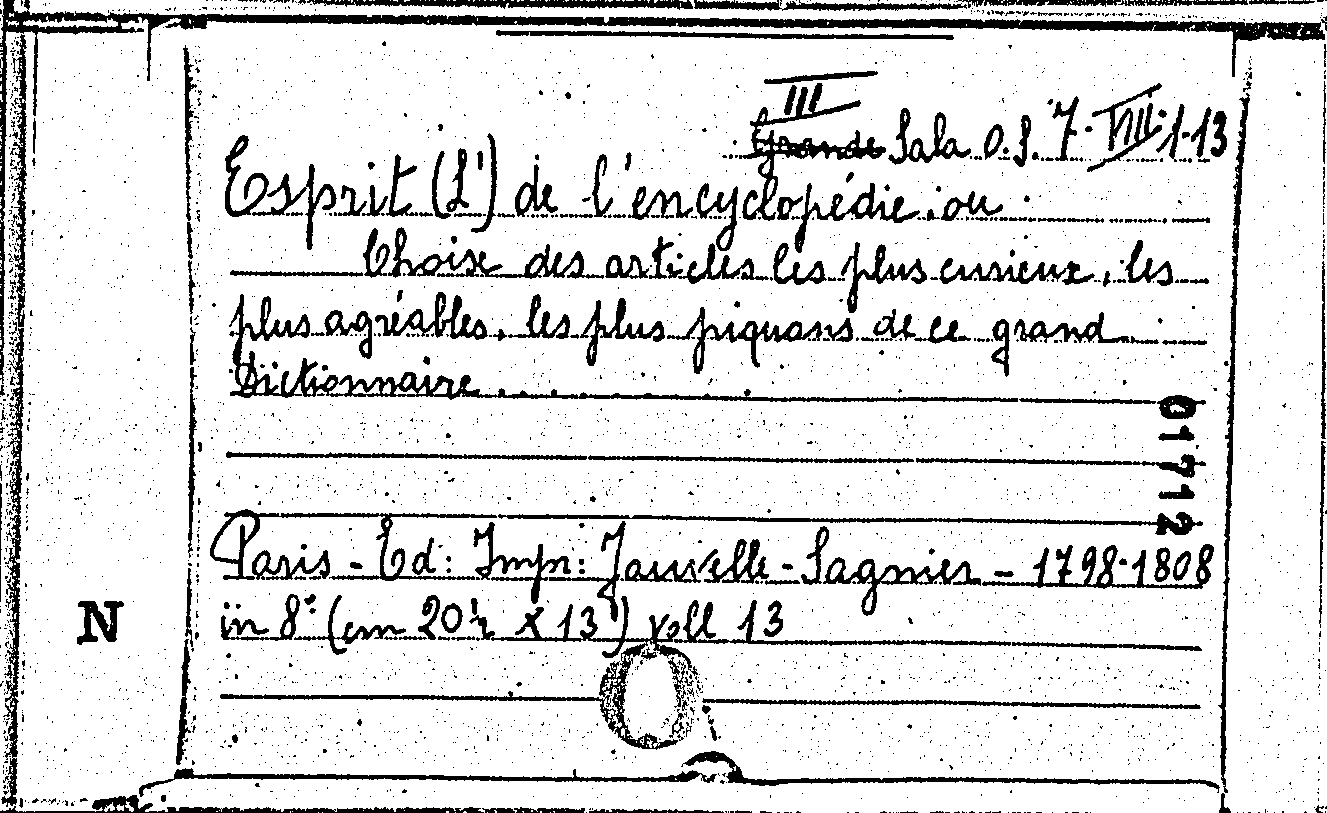 III
Grande Sala O.S. 7. VIII. 1-13
Esprit (L') de l'encyclopédie, ou
Choise des articles les plus curieux, les
plus agréables, les plus piquans de ce grand
Dictionnaire . . . . . .
01712
Paris - Ed: Impr: Fauvelle - Sagnier - 1798-1808
N
in 8° (cm 20½ x 13) voll 13